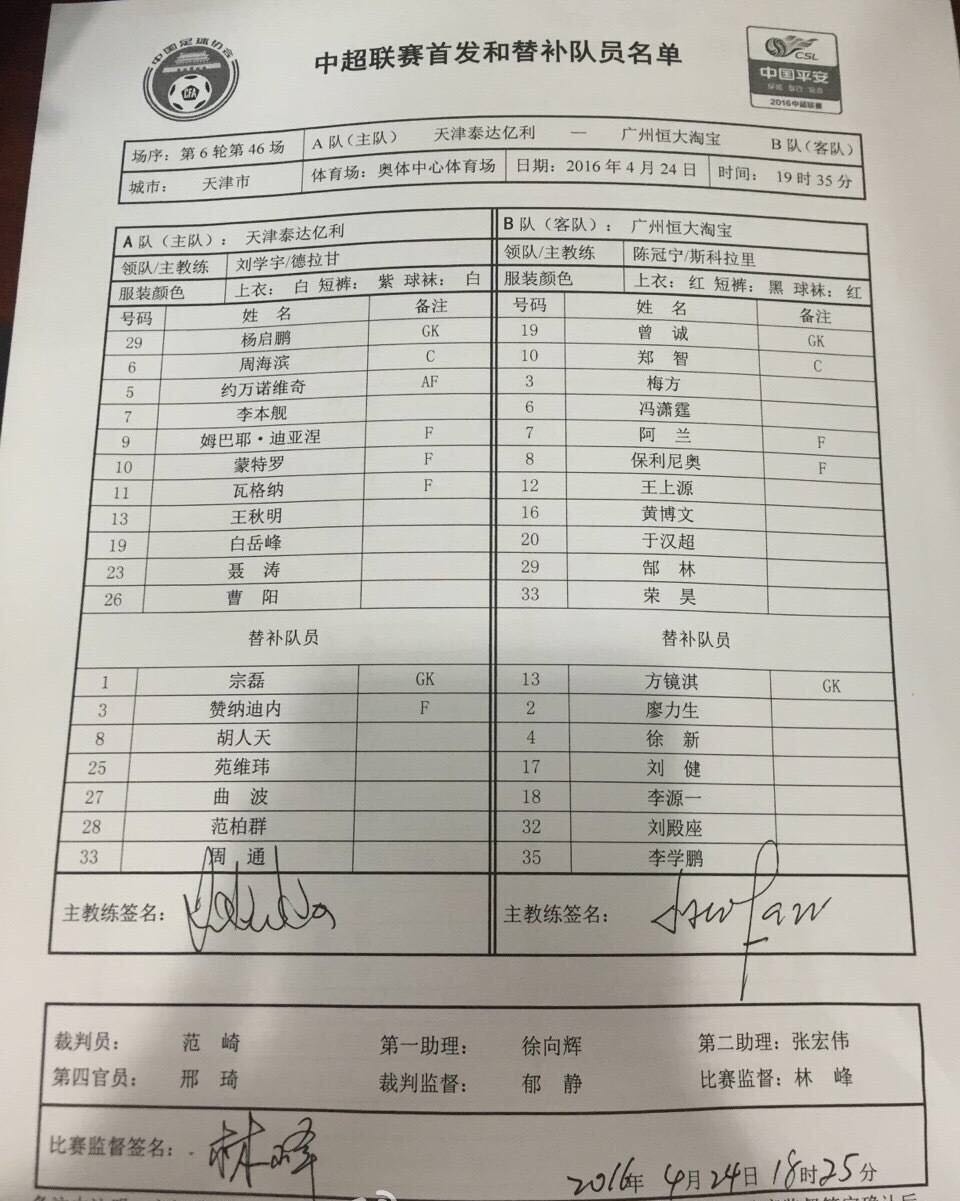 中国足球协会
CFA
中超联赛首发和替补队员名单
CSL
中国平安
2016中超联赛
场序：第 6 轮第 46 场 A 队（主队） 天津泰达亿利 — 广州恒大淘宝 B 队（客队）
城市： 天津市 体育场：奥体中心体育场 日期：2016 年 4 月 24 日 时间： 19 时 35 分
A 队（主队）： 天津泰达亿利 B 队（客队）： 广州恒大淘宝
领队/主教练 刘学宇/德拉甘 领队/主教练 陈冠宁/斯科拉里
服装颜色 上衣： 白 短裤： 紫 球袜： 白 服装颜色 上衣： 红 短裤： 黑 球袜： 红
号码 姓 名 备注 号码 姓 名 备注
29 杨启鹏 GK 19 曾 诚 GK
6 周海滨 C 10 郑 智 C
5 约万诺维奇 AF 3 梅方
7 李本舰 6 冯潇霆
9 姆巴耶·迪亚涅 F 7 阿 兰 F
10 蒙特罗 F 8 保利尼奥 F
11 瓦格纳 F 12 王上源
13 王秋明 16 黄博文
19 白岳峰 20 于汉超
23 聂 涛 29 郜 林
26 曹 阳 33 荣 昊
替补队员 替补队员
1 宗磊 GK 13 方镜淇 GK
3 赞纳迪内 F 2 廖力生
8 胡人天 4 徐 新
25 苑维玮 17 刘 健
27 曲 波 18 李源一
28 范柏群 32 刘殿座
33 周 通 35 李学鹏
主教练签名： 主教练签名：
裁判员： 范 崎 第一助理： 徐向辉 第二助理：张宏伟
第四官员： 邢 琦 裁判监督： 郁 静 比赛监督：林 峰
比赛监督签名： 林峰
2016年 4月24日 18时25分